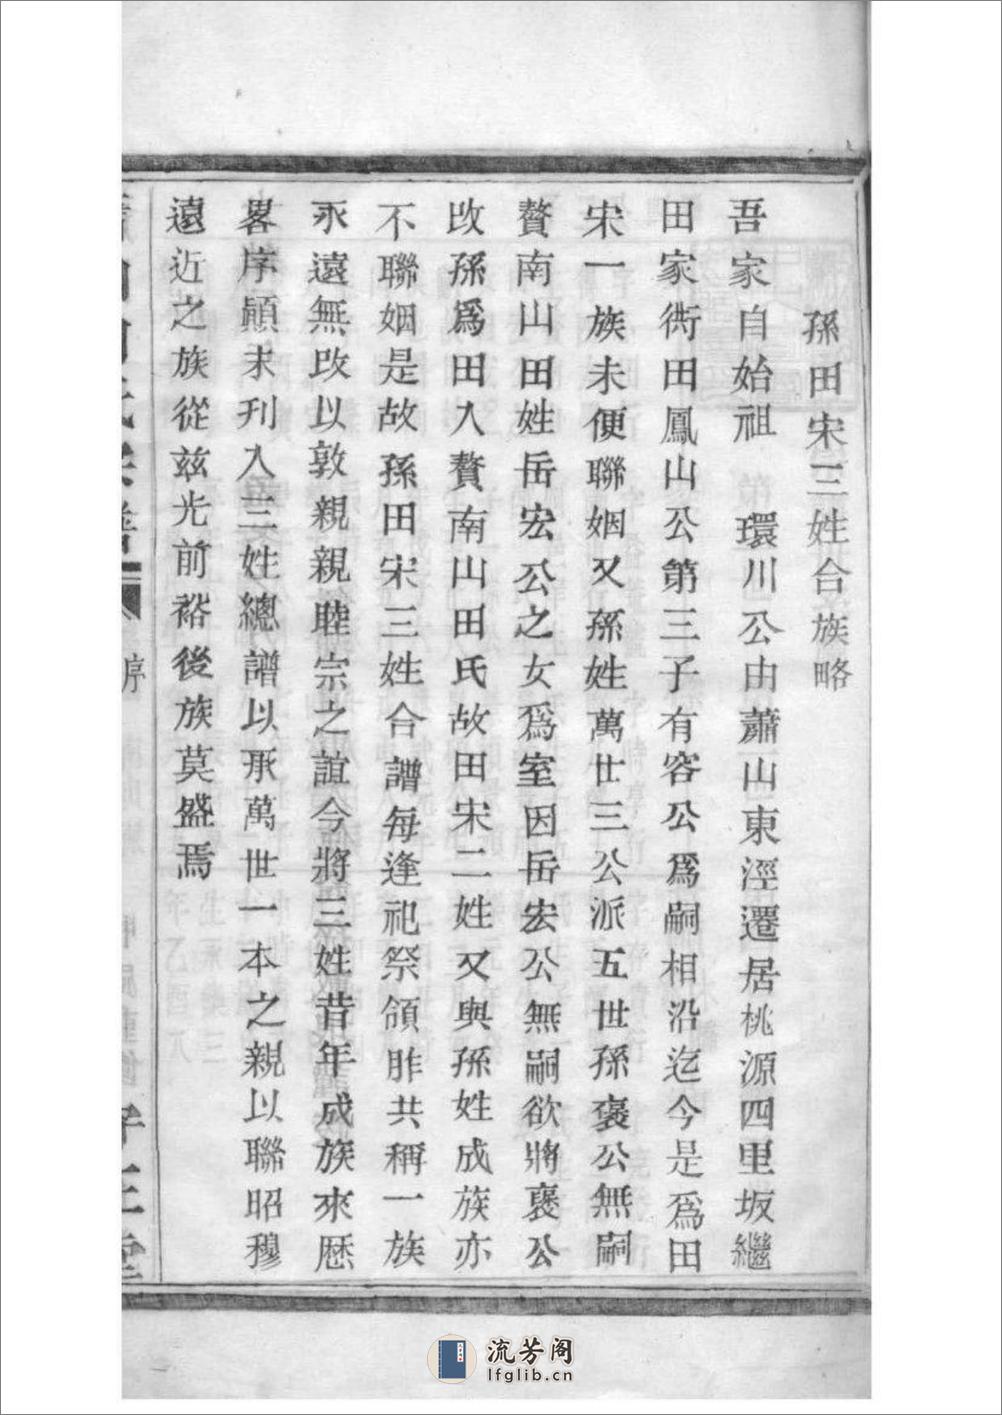 孫田宋三姓合族略
吾家自始祖 環川公由蕭山東涇遷居桃源四里坂繼
田家衖田鳳山公第三子有容公爲嗣相沿迄今是爲田
宋一族未便聯姻又孫姓萬廿三公派五世孫褒公無嗣
贅南山田姓岳宏公之女爲室因岳宏公無嗣欲將褒公
改孫爲田入贅南山田氏故田宋二姓又與孫姓成族亦
不聯姻是故孫田宋三姓合譜每逢祀祭領胙共稱一族
永遠無改以敦親親睦宗之誼今將三姓昔年成族來歷
畧序顚末刋入三姓總譜以承萬世一本之親以聯昭穆
遠近之族從兹光前裕後族莫盛焉
序
流芳阁
lfglib.cn